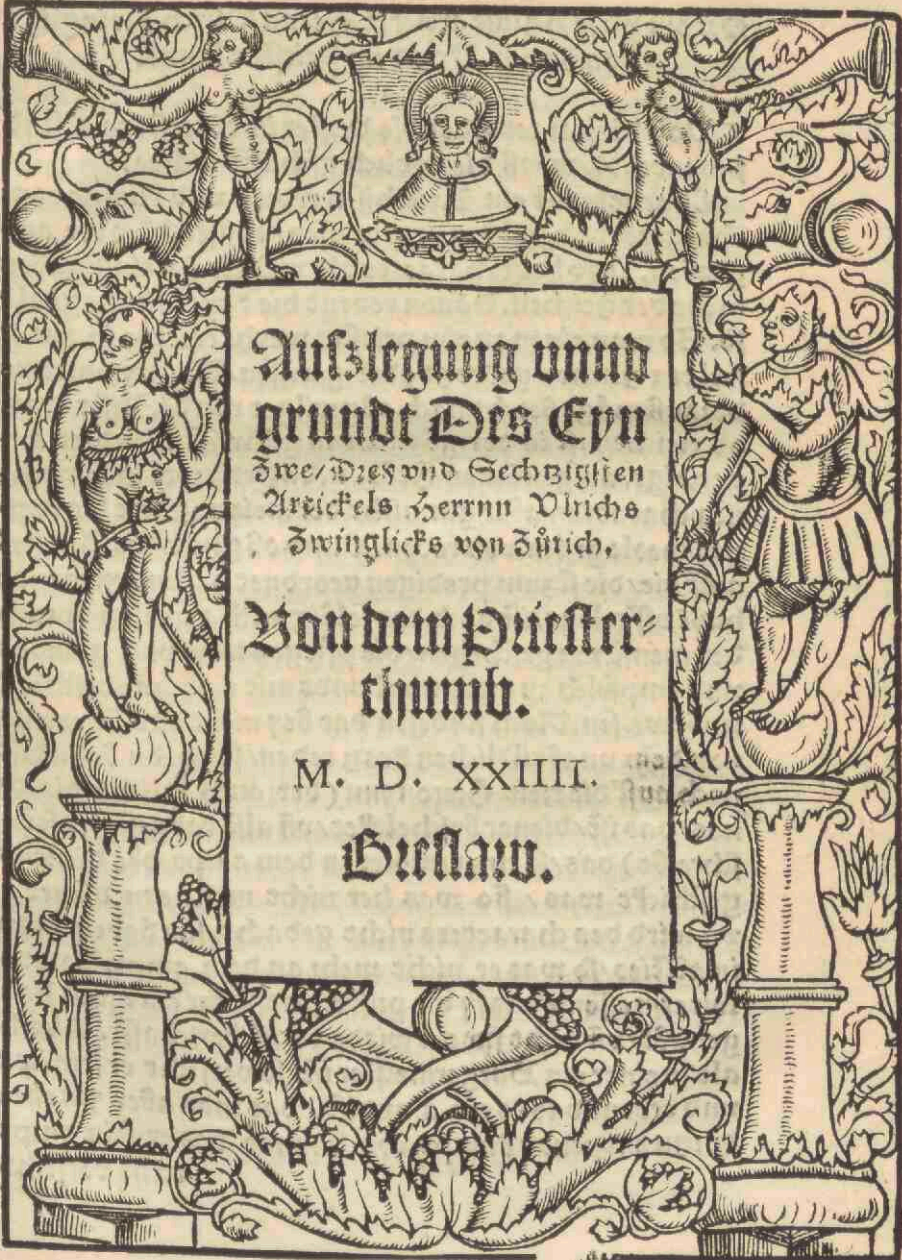 Auſzlegung vnnd
grundt Des Eyn
Zwe/Drey vnd Sechtzigſten
Artickels Herrnn Vlrichs
Zwinglicks von Zürich.
Von dem Prieſter⸗
thumb.
M. D. XXIIII.
Breſlaw.